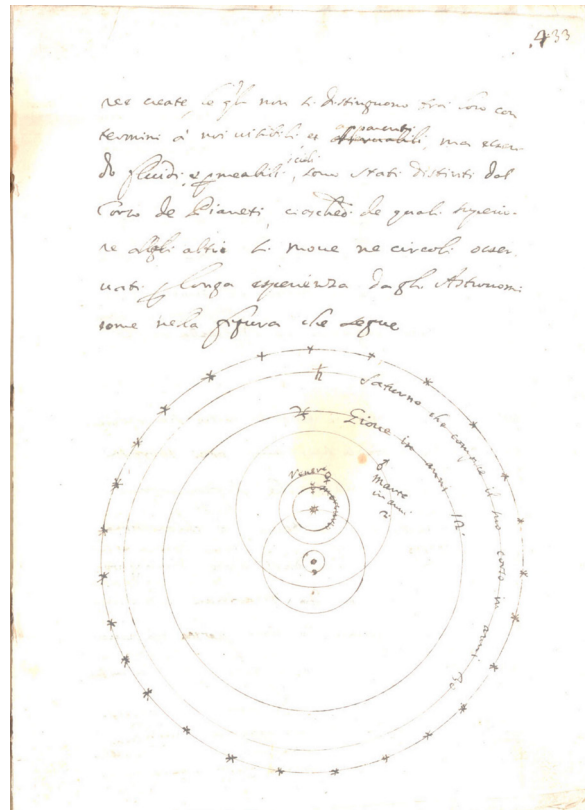 433
ree create, io gli non si distinguono frà loro con
termini à noi visibili, et apparenti, ma essen
do fluidi, e permeabili, sono stati distinti dal
Corso de Pianeti, de quali superio
re agli altri si move ne circoli osser
vati longa esperienza dagli Astronomi
come nella figura che segue
Saturno che compisce il suo corso in anni 30
Giove in anni 12
♂ Marte in anni 2
Venere